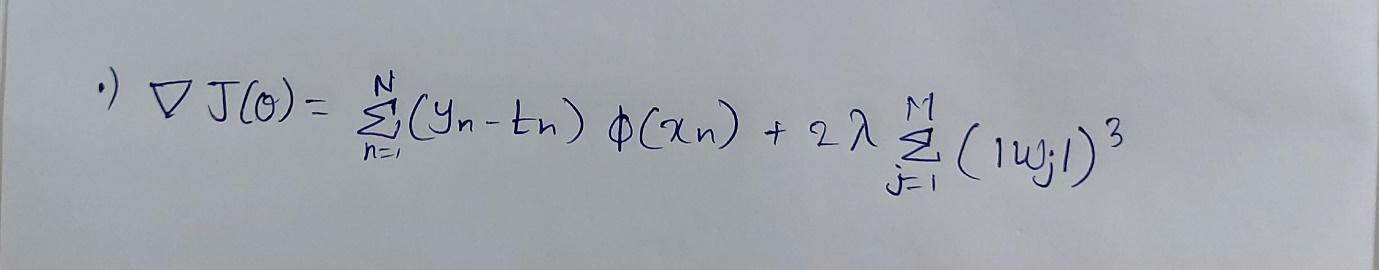 ·) ∇ J(θ) = Σ_{n=1}^{N} (y_n - t_n) ϕ(x_n) + 2 λ Σ_{j=1}^{M} (|w_j|)^3